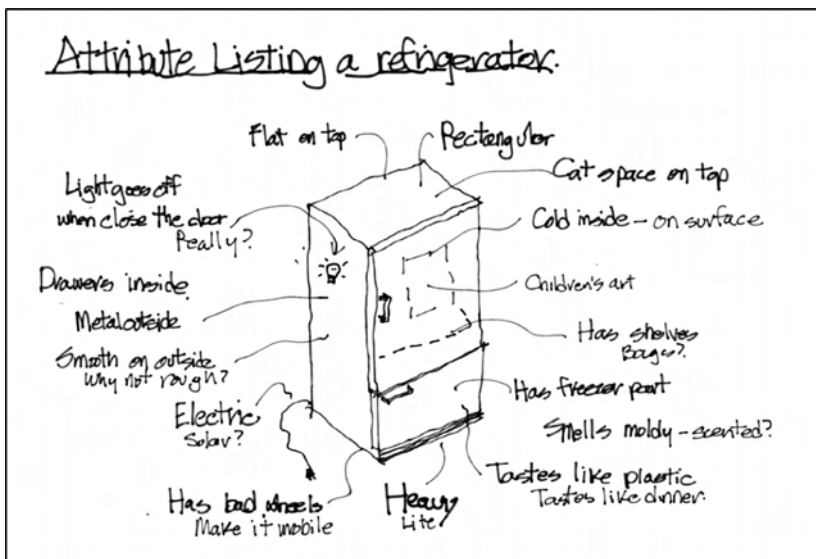 Attribute Listing a refrigerator.
Flat on top
Rectangular
Cat space on top
Light goes off
when close the door
Really?
Cold inside - on surface
Drawers inside
Children's art
Metal outside
Has shelves
Bags?
Smooth on outside
Why not rough?
Has freezer part
Electric
Solar?
Smells moldy - scented?
Tastes like plastic
Tastes like dinner.
Has bad wheels
Make it mobile
Heavy
Lite